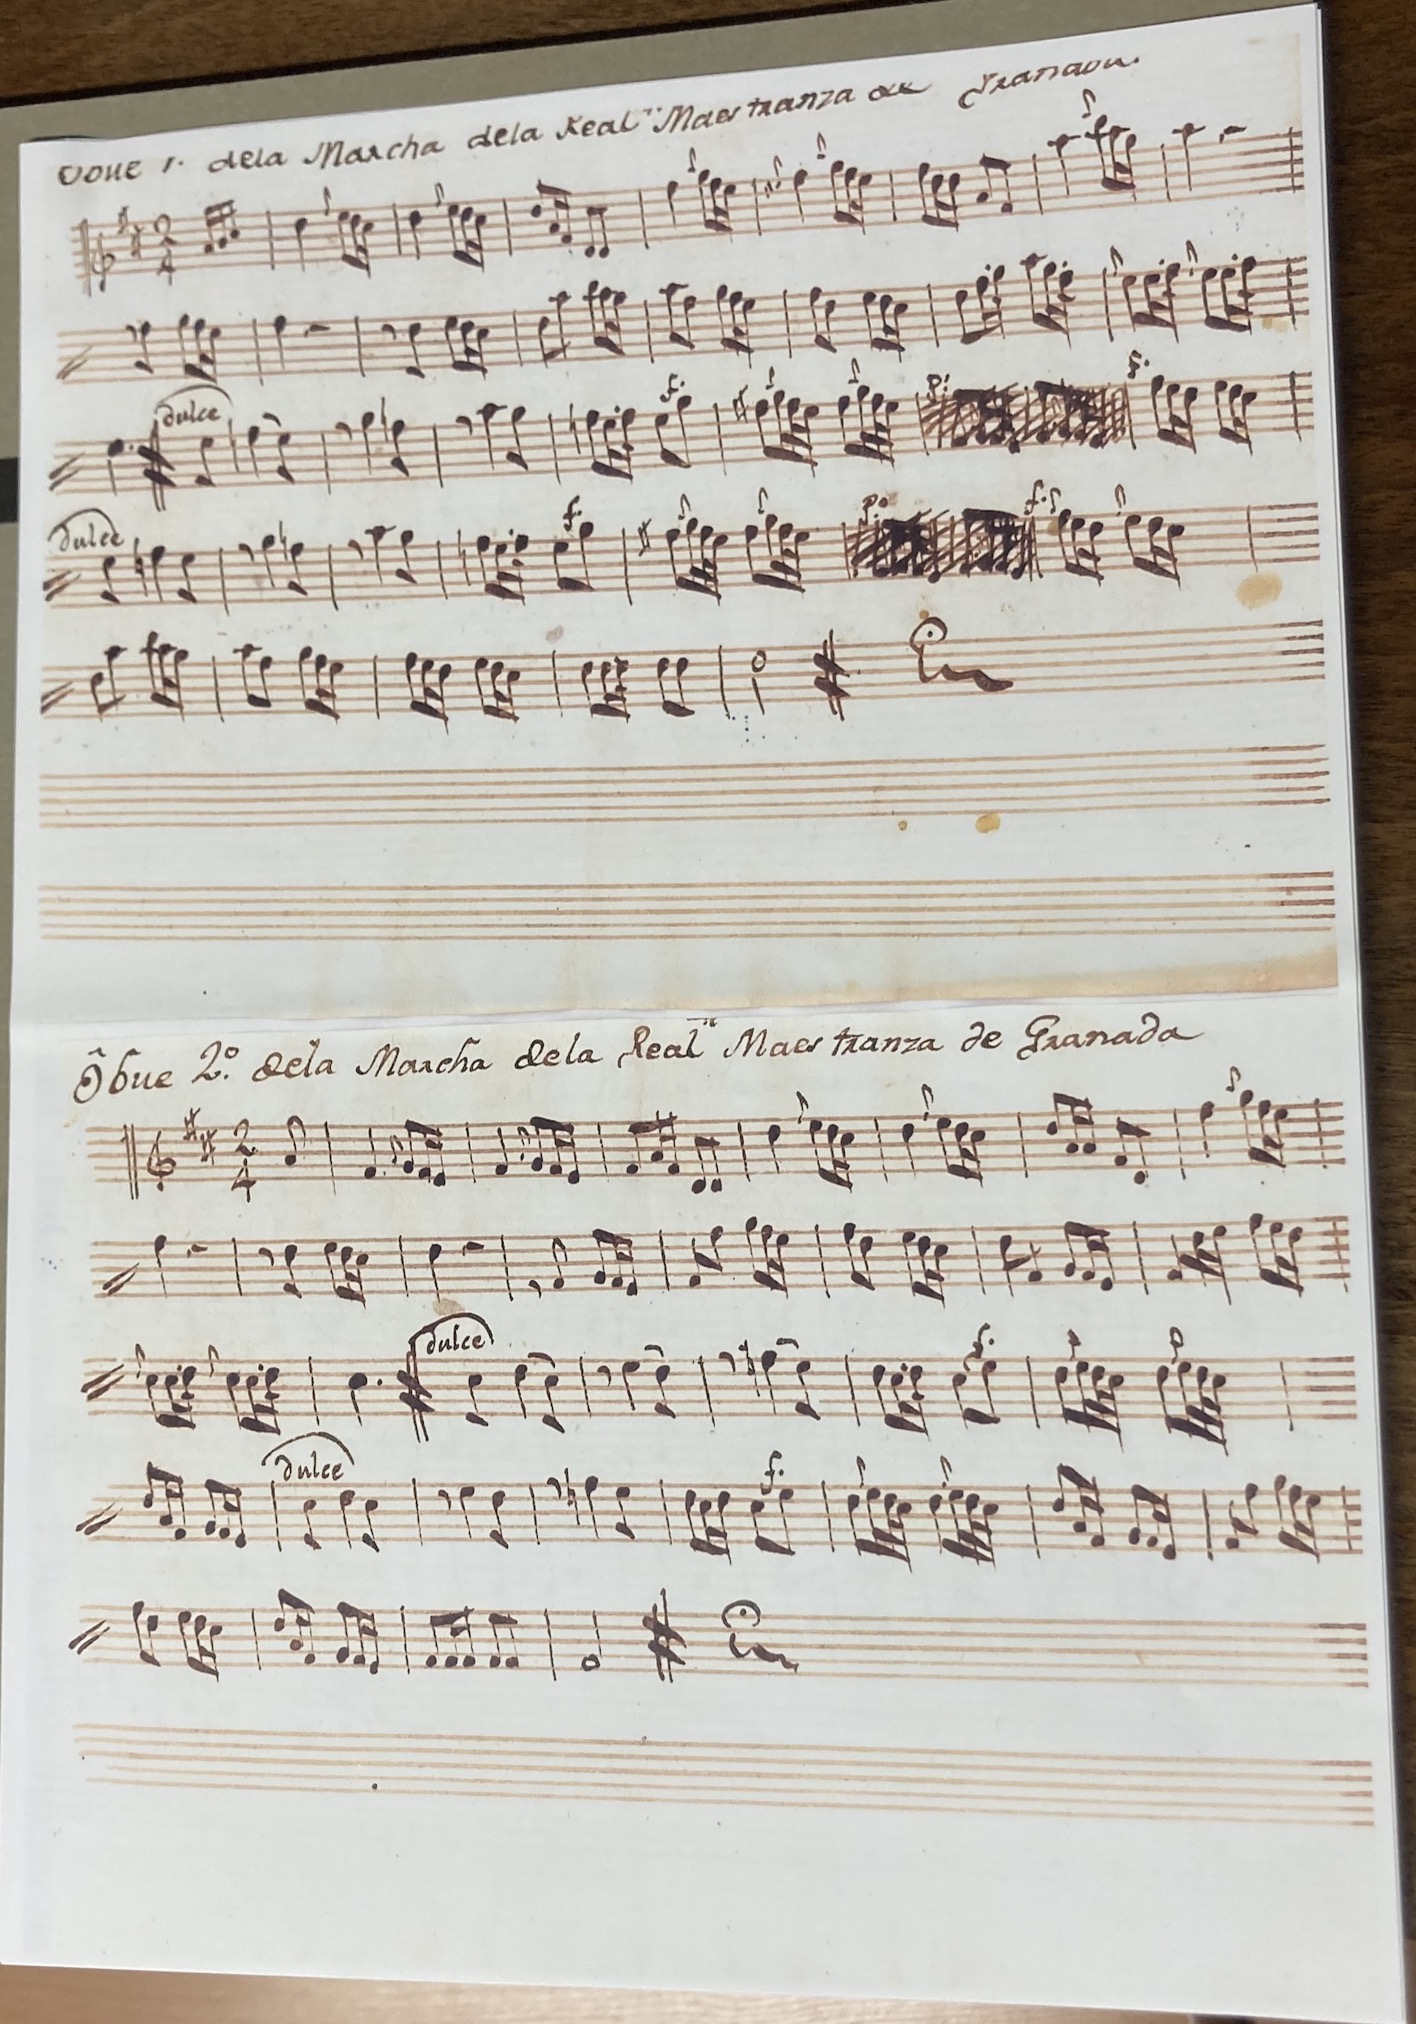 Oboe 1.º dela Marcha dela Real Maestranza de Granada.
2
4
dulce
f.
p.
f.
dulce
f.
p.º
f.
Oboe 2.º dela Marcha dela Real Maestranza de Granada
2
4
dulce
f.
dulce
f.